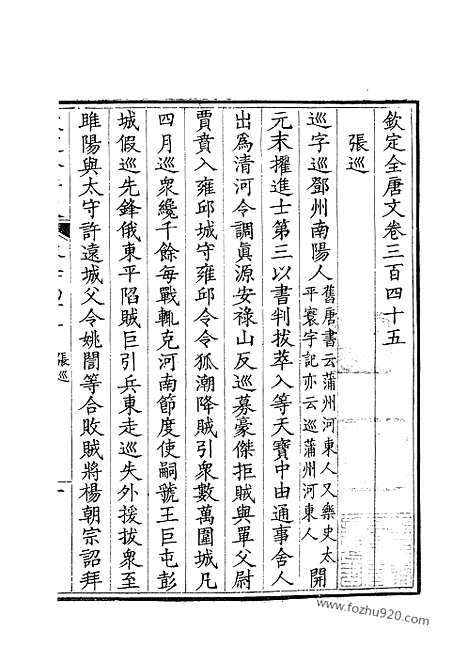 欽定全唐文卷三百四十五
張巡
巡字巡鄧州南陽人舊唐書云蒲州河東人又樂史太平寰宇記亦云巡蒲州河東人開
元末擢進士第三以書判拔萃入等天寶中由通事舍人
出爲清河令調眞源安祿山反巡募豪傑拒賊與單父尉
賈賁入雍邱城守雍邱令令狐潮降賊引衆數萬圍城凡
四月巡衆纔千餘每戰輒克河南節度使嗣虢王巨屯彭
城假巡先鋒俄東平陷賊巨引兵東走巡失外援拔衆至
睢陽與太守許遠城父令姚誾等合敗賊將楊朝宗詔拜
張巡
一
www.fozhu920.com